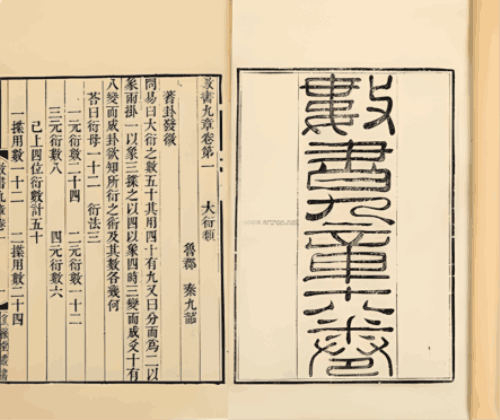 數書九章十八卷
數書九章卷第一 大衍類
魯郡 秦九韶
蓍卦發微
問易曰大衍之數五十其用四十有九又曰分而為二以
象兩掛一以象三揲之以四以象四時三變而成爻十有
八變而成卦欲知所衍之術及其數各幾何
答曰衍母一十二 衍法三
一元衍數二十四 二元衍數一十二
三元衍數八 四元衍數六
已上四位衍數計五十
一揲用數一十二 二揲用數二十四
數書九章卷一
宜稼堂叢書